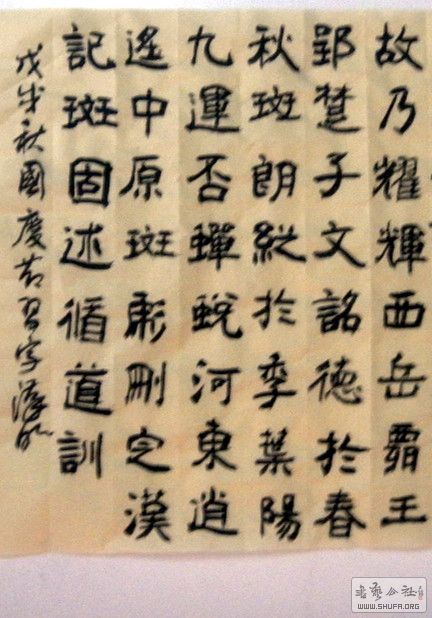 故乃耀輝西岳霸王
郢楚子文詺德於春
秋斑朗縱於季葉陽
九運否蟬蛻河東逍
遙中原斑彪刪定漢
記斑固述循道訓
戊戌秋國慶節習字
书艺公社
WWW.SHUFA.ORG